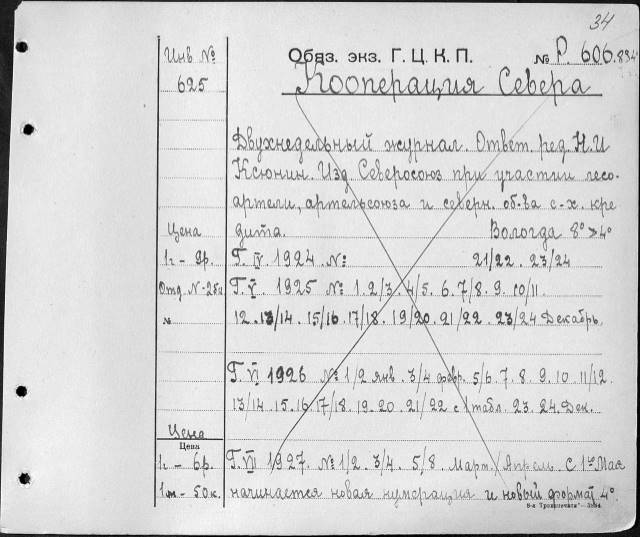 34
Инв №
625
Обяз. экз. Г. Ц. К. П.
№ Р. 606.834
Кооперация Севера
Двухнедельный журнал. Ответ. ред. Н. И
Ксюнин. Изд Северосоюз при участии лесо-
артели, артельсоюза и северн. об-ва с-х. кре
дита. Вологда 8° > 4°
Цена
1г - 9р.
Отд. № - 25к
№
Г. IV 1924 №: 21/22. 23/24
Г. V 1925 № 1. 2/3. 4/5. 6. 7/8. 9. 10/11.
12. 13/14. 15/16. 17/18. 19/20. 21/22. 23/24 Декабрь.
Г. VI 1926 № 1/2 янв. 3/4 февр. 5/6. 7. 8. 9. 10. 11/12
13/14. 15. 16. 17/18. 19. 20. 21/22 с 1 табл. 23. 24. Дек.
Цена
Цена
1г - 6р.
1м - 50к.
Г. VII 1927. № 1/2. 3/4. 5/8. Март./Апрель. С 1го Мая
начинается новая нумерация и новый формат 4°.